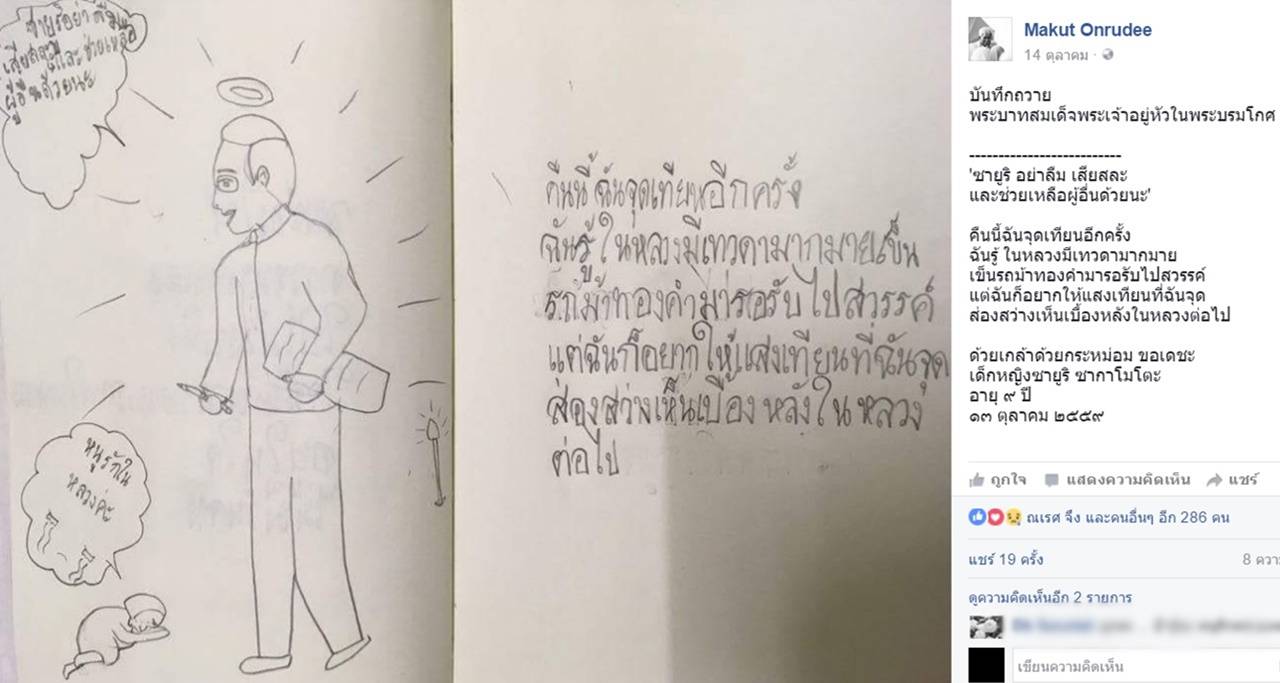 ซายูริอย่าลืม
เสียสละและช่วยเหลือ
ผู้อื่นด้วยนะ
หนูรักใน
หลวงค่ะ
คืนนี้ฉันจุดเทียนอีกครั้ง
ฉันรู้ในหลวงมีเทวดามากมายเข็น
รถม้าทองคำมารอรับไปสวรรค์
แต่ฉันก็อยากให้แสงเทียนที่ฉันจุด
ส่องสว่างเห็นเบื้องหลังในหลวง
ต่อไป
Makut Onrudee
14 ตุลาคม
บันทึกถวาย
พระบาทสมเด็จพระเจ้าอยู่หัวในพระบรมโกศ
--------------------------
'ซายูริ อย่าลืม เสียสละ
และช่วยเหลือผู้อื่นด้วยนะ'
คืนนี้ฉันจุดเทียนอีกครั้ง
ฉันรู้ ในหลวงมีเทวดามากมาย
เข็นรถม้าทองคำมารอรับไปสวรรค์
แต่ฉันก็อยากให้แสงเทียนที่ฉันจุด
ส่องสว่างเห็นเบื้องหลังในหลวงต่อไป
ด้วยเกล้าด้วยกระหม่อม ขอเดชะ
เด็กหญิงซายูริ ซากาโมโตะ
อายุ ๙ ปี
๑๓ ตุลาคม ๒๕๕๙
ถูกใจ แสดงความคิดเห็น แชร์
ณเรศ จึง และคนอื่นๆ อีก 286 คน
แชร์ 19 ครั้ง 8 ความ
ดูความคิดเห็นอีก 2 รายการ
เขียนความคิดเห็น